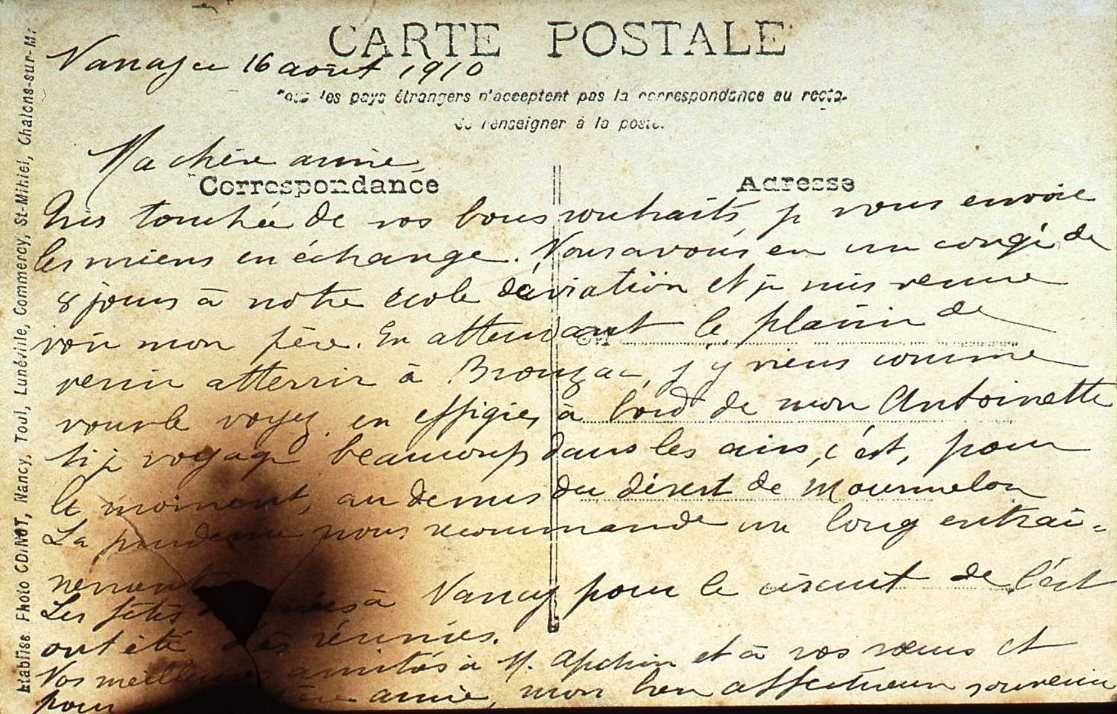 CARTE POSTALE
16 août 1910
Tous les pays étrangers n'acceptent pas la correspondance au recto.
Se renseigner à la poste.
Ma chère amie,
Correspondance
Adresse
Très touchée de vos bons souhaits je vous envoie
les miens en échange. Nous avons eu un congé de
8 jours à notre école d'aviation et je suis venue
voir mon père. En attendant le plaisir de
venir atterrir à j'y viens comme
vous le voyez, en effigie, à bord de mon Antoinette
si je voyage beaucoup dans les airs, c'est, pour
le moment, au dessus du désert de Mourmelon
La prudence nous recommande un long entraî=
nement
Les fêtes à Nancy pour le circuit de l'est
ont été très réussies.
Vos meilleures amitiés à M. et à vos sœurs et
pour chère amie, mon bien affectueux souvenir
Etabliss Photo CDINOT, Nancy, Toul, Lunéville, Commercy, St-Mihiel, Chalons-sur-M.